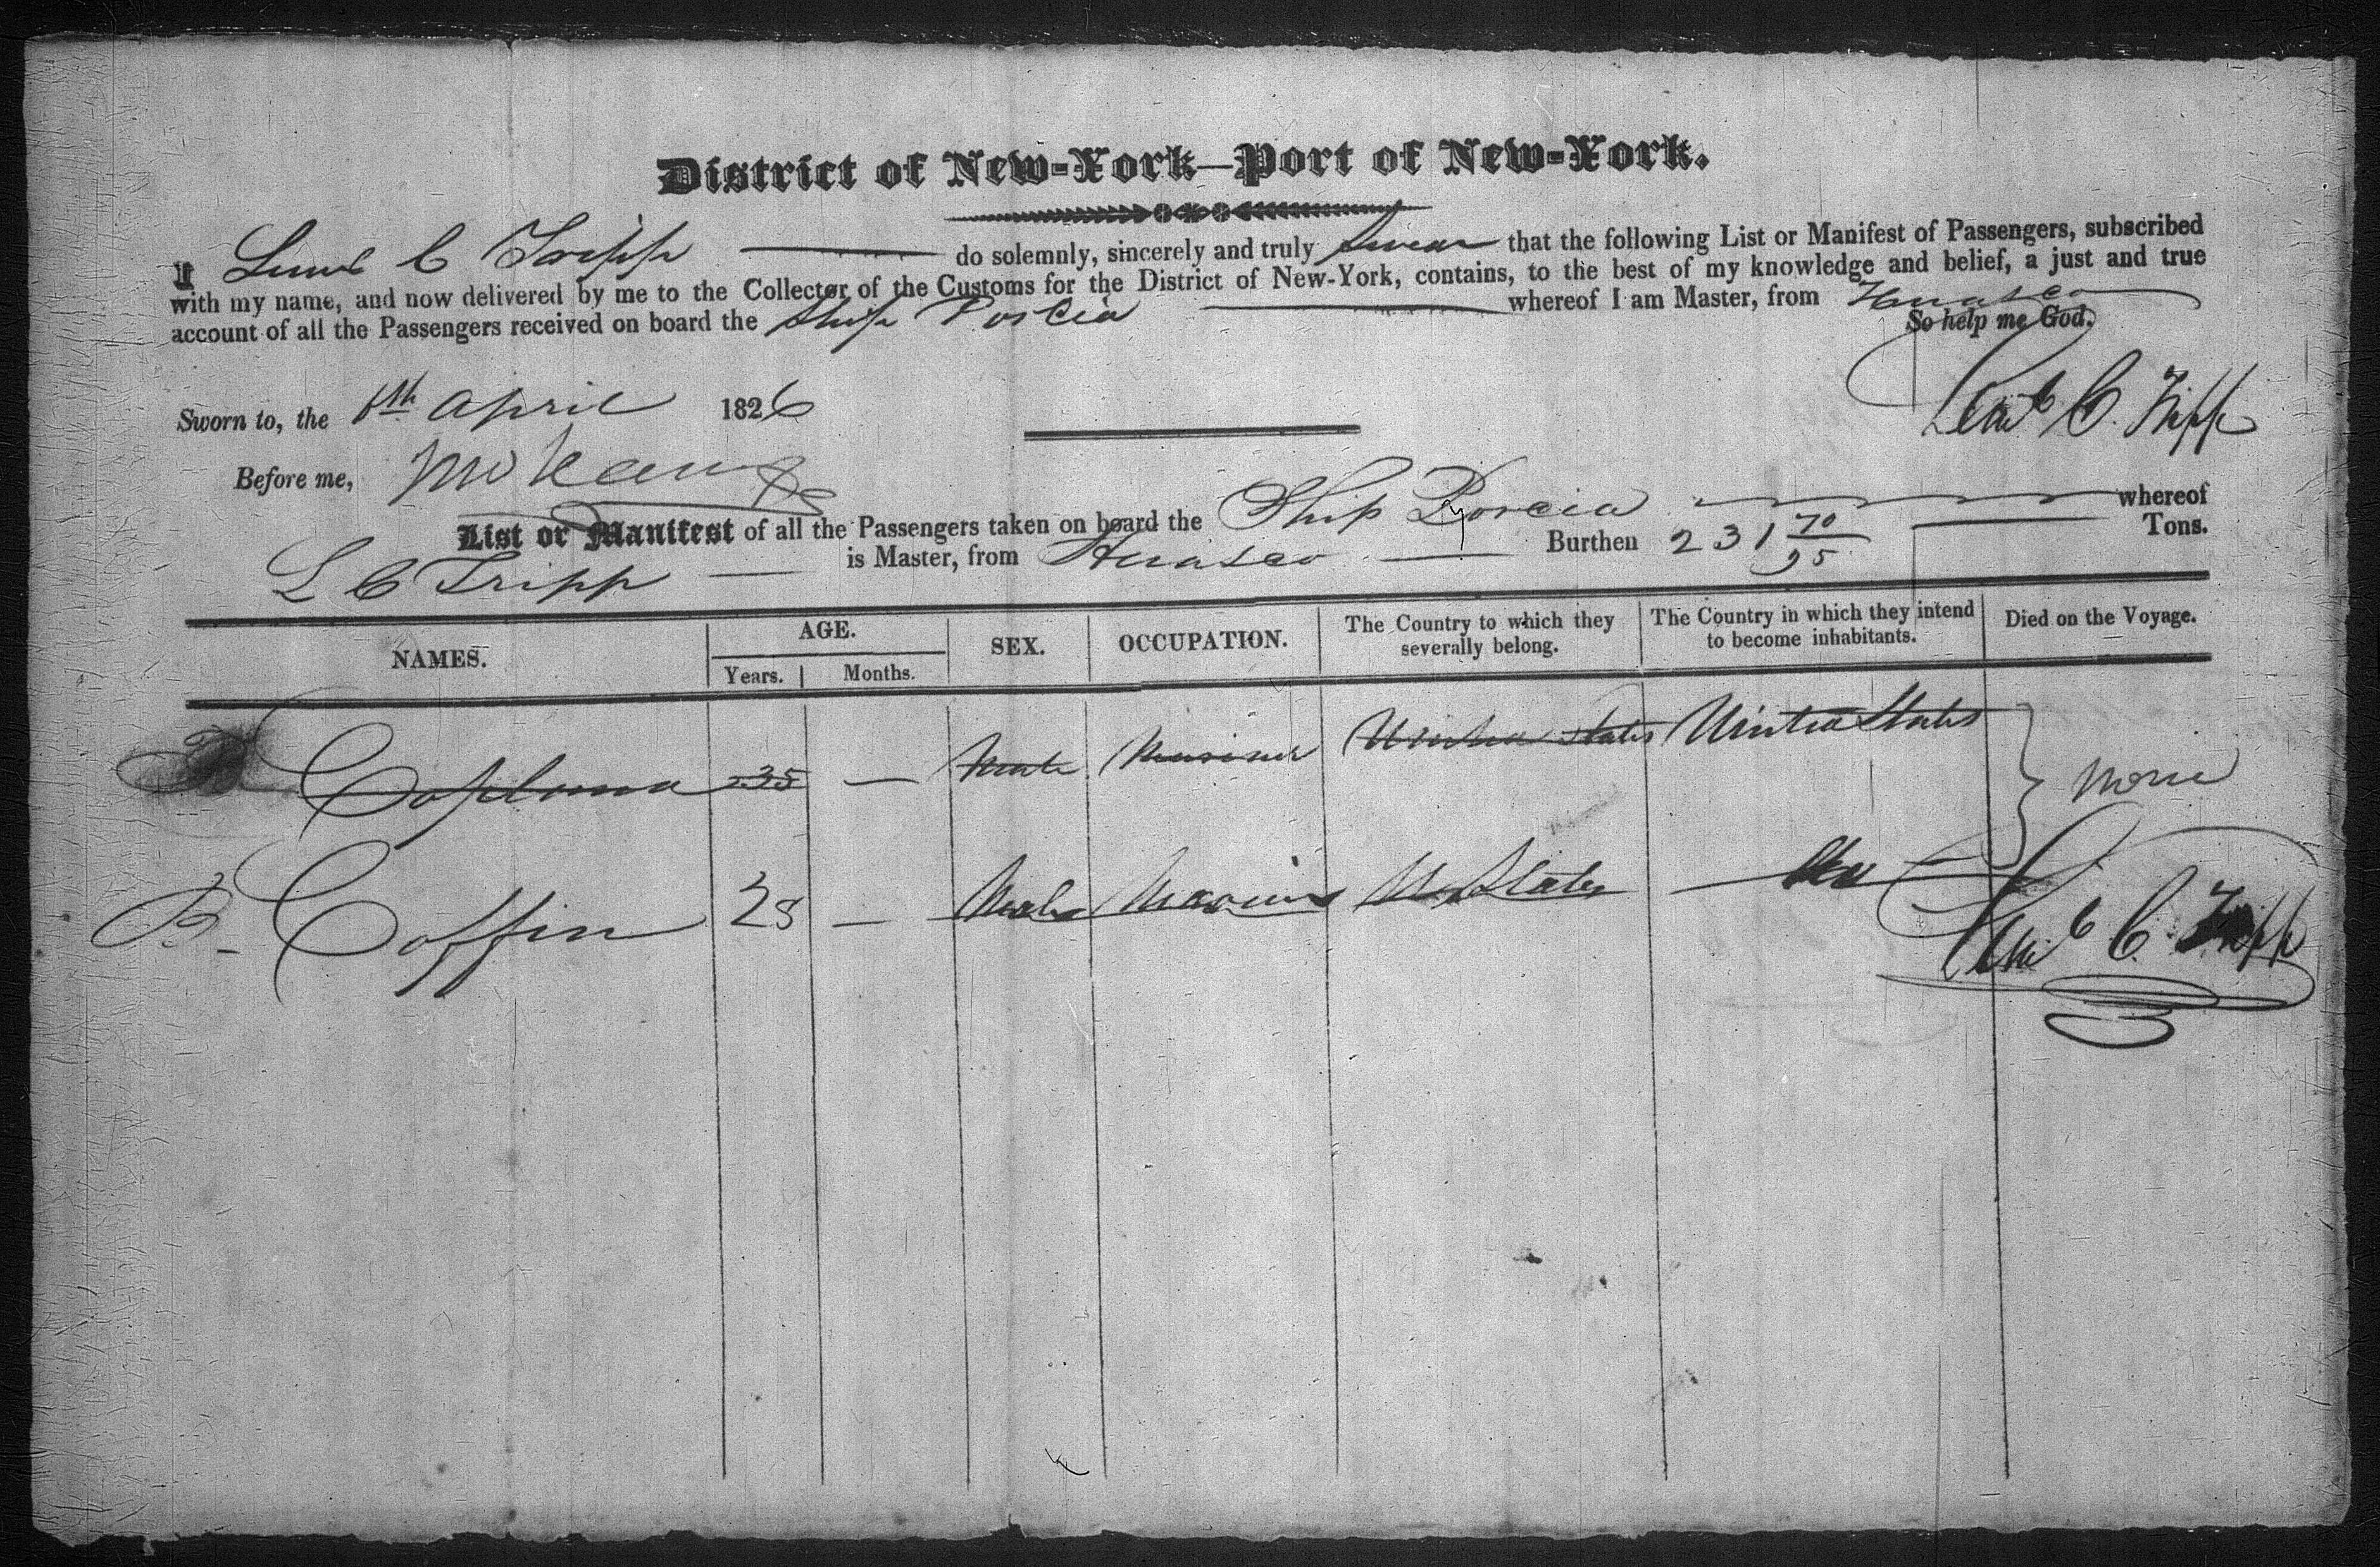 District of New-York—Port of New-York.
I Leml C Tripp do solemnly, sincerely and truly swear that the following List or Manifest of Passengers, subscribed
with my name, and now delivered by me to the Collector of the Customs for the District of New-York, contains, to the best of my knowledge and belief, a just and true
account of all the Passengers received on board the Ship Porcia whereof I am Master, from Huasco
So help me God.
Sworn to, the 6th April 1826
Leml C. Tripp
Before me,
List or Manifest of all the Passengers taken on board the Ship Porcia whereof
L C Tripp is Master, from Huasco Burthen 231 70/95 Tons.
NAMES. AGE. SEX. OCCUPATION. The Country to which they severally belong. The Country in which they intend to become inhabitants. Died on the Voyage.
Years. Months.
35 — Male Mariner United States United States None
B. Coffin 28 — Male Mariner U States
Leml C. Tripp